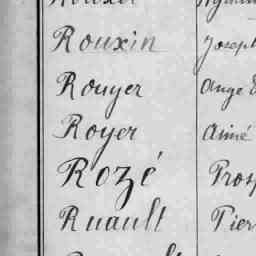 Rouxin Joseph
Rouyer Ange
Royer Aimé
Rozé Prosp
Ruault Pier